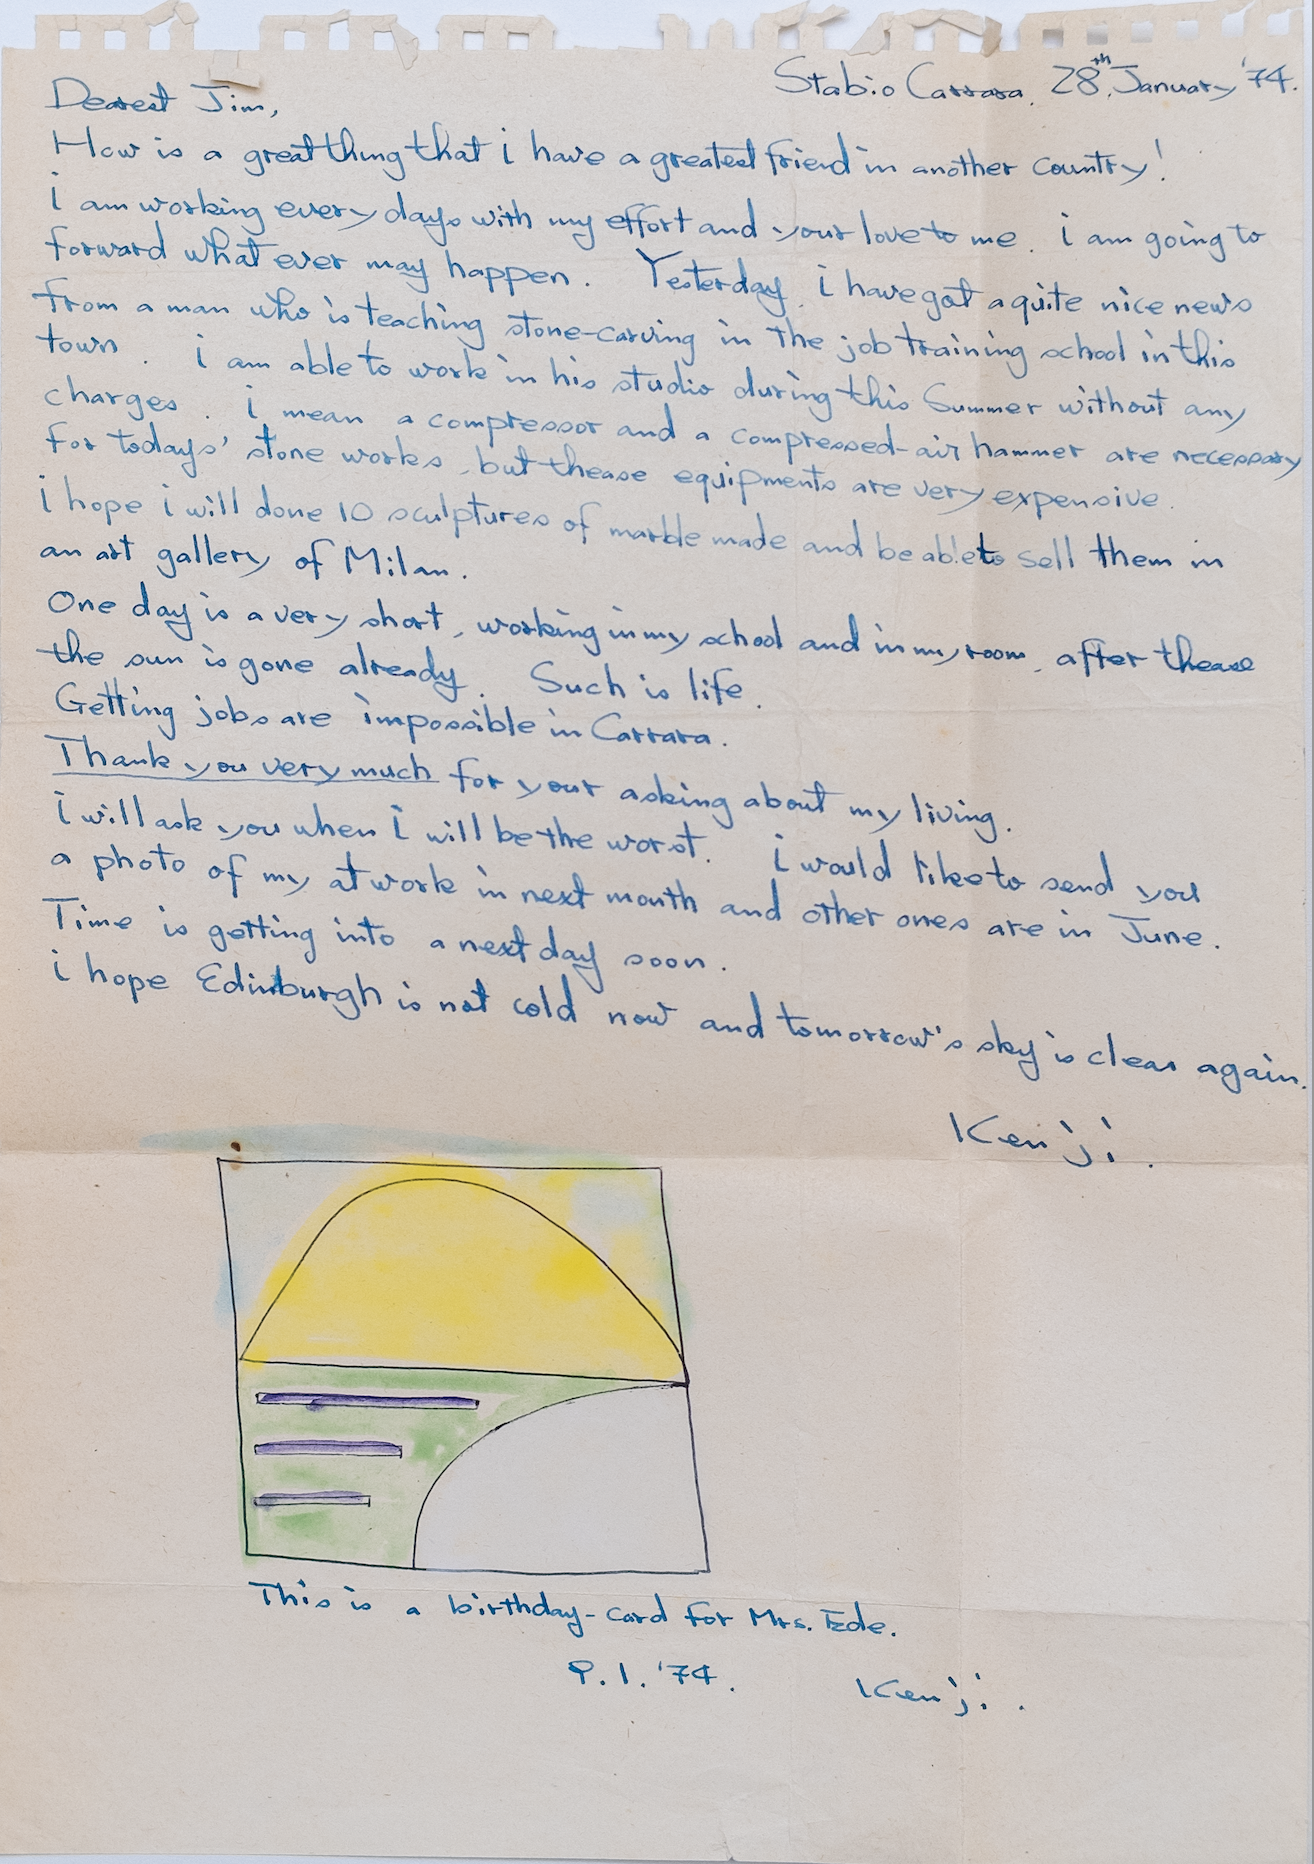 Stabio Carrara, 28th, January '74.
Dearest Jim,
How is a great thing that i have a greatest friend in another country!
i am working every days with my effort and your love to me. i am going to
forward what ever may happen. Yesterday, i have got a quite nice news
from a man who is teaching stone-carving in the job training school in this
town. i am able to work in his studio during this Summer without any
charges. i mean a compressor and a compressed-air hammer are necessary
for todays' stone works, but thease equipments are very expensive.
i hope i will done 10 sculptures of marble made and be able to sell them in
an art gallery of Milan.
One day is a very short, working in my school and in my room, after thease
the sun is gone already. Such is life.
Getting jobs are impossible in Carrara.
Thank you very much for your asking about my living.
i will ask you when i will be the worst. i would like to send you
a photo of my at work in next month and other ones are in June.
Time is getting into a next day soon.
i hope Edinburgh is not cold now and tomorrow's sky is clear again.
Kenji.
This is a birthday-card for Mrs. Ede.
9.1.'74.
Kenji.